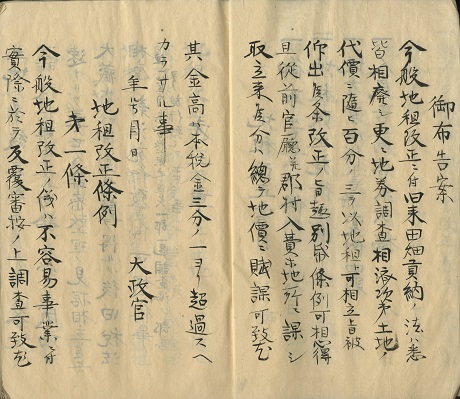 御布告案
今般地租改正ニ付旧来田畑貢納ノ法ハ悉
皆相廃シ更ニ地券調査相済次第土地ノ
代價ニ随ヒ百分ノ三ヲ以地租ト可相立旨被
仰出候条改正ノ旨趣別紙条例可相心得
且従前官廳並郡村入費等地所ニ課シ
取立来候分ハ総テ地價ニ賦課可致尤
其金高ハ本税金三分ノ一ヨリ超過スヘ
カラサル事
年号月日
大政官
地租改正條例
第一條
今般地租改正ノ儀ハ不容易事業ニ付
實際ニ於テ反覆審按ノ上調査可致尤